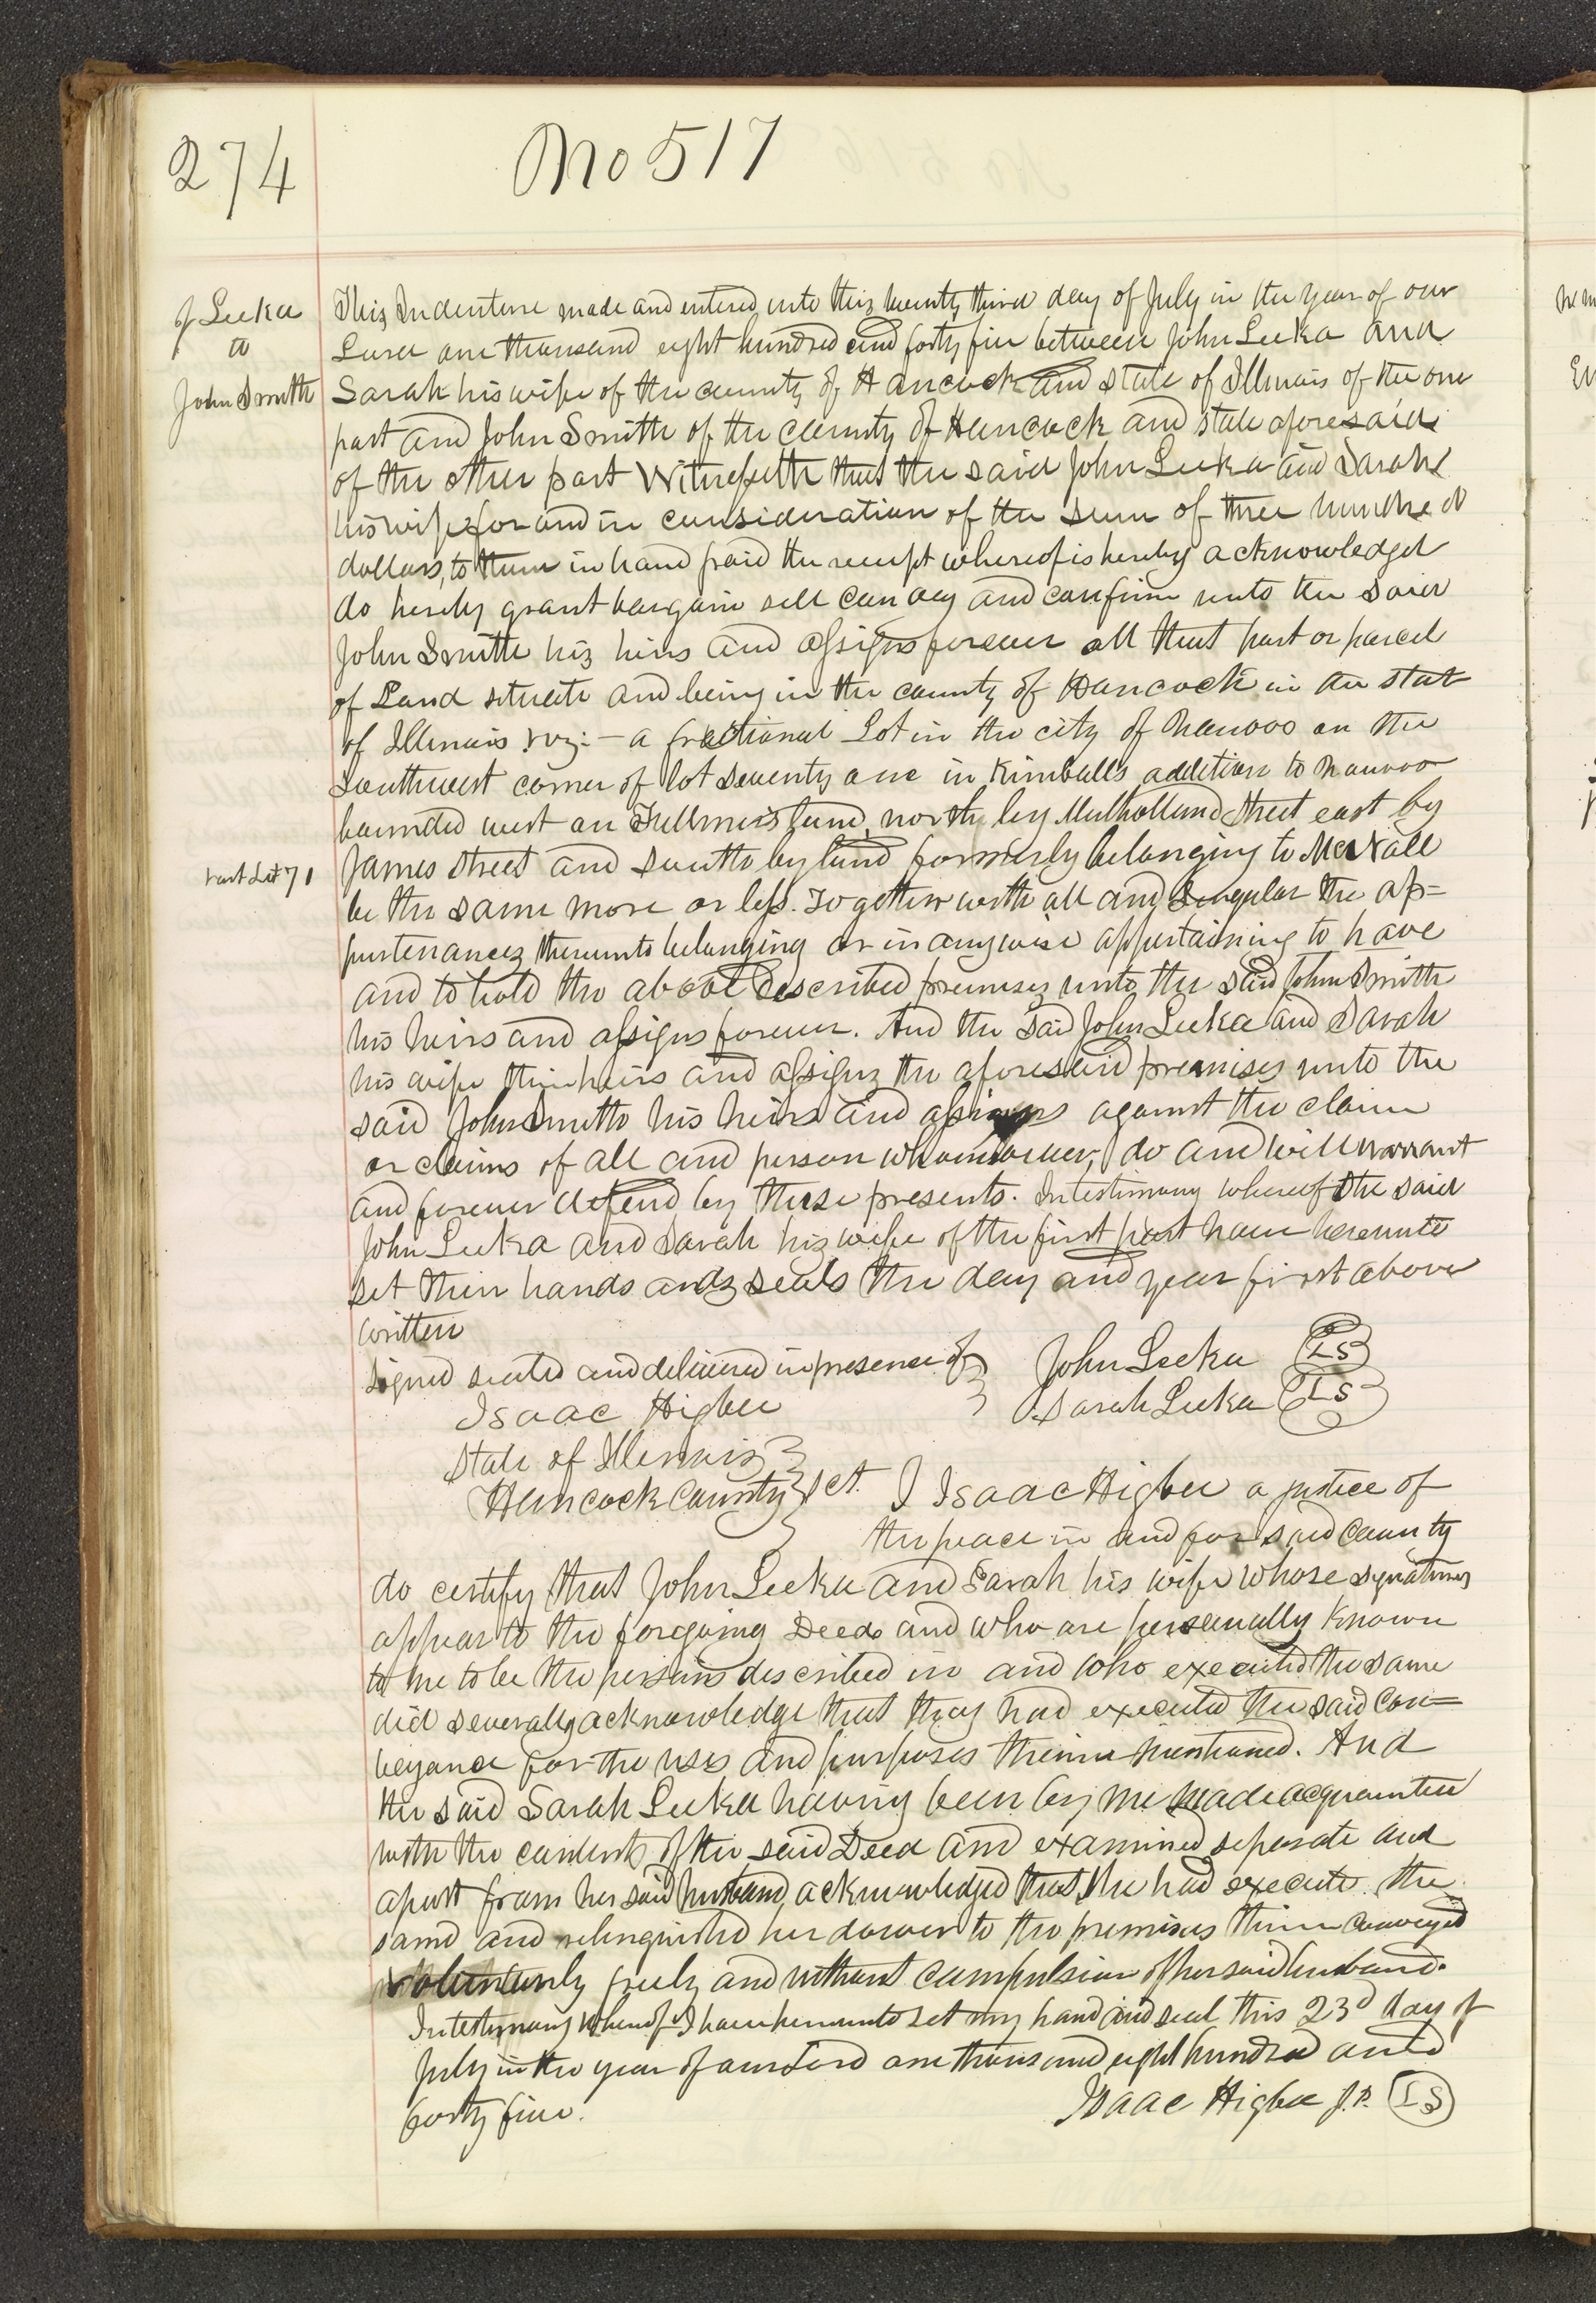 274
No 517
J Leeka
to
John Smith
This Indenture made and entered into this twenty third day of July in the year of our
Lord one thousand eight hundred and forty five between John Leeka and
Sarah his wife of the county of Hancock and state of Illinois of the one
part and John Smith of the county of Hancock and state aforesaid
of the other part Witnesseth that the said John Leeka and Sarah
his wife for and in consideration of the sum of three hundred
dollars, to them in hand paid the receipt whereof is hereby acknowledged
do hereby grant bargain sell convey and confirm unto the said
John Smith his heirs and assigns forever all that part or parcel
of Land situate and being in the county of Hancock in the state
of Illinois viz:— a fractional Lot in the city of Nauvoo on the
Southwest corner of lot seventy one in Kimballs addition to Nauvoo
bounded west on Fullmers land, north by Mulholland Street east by
part Lot 71
James Street and south by land formerly belonging to
be the same more or less. Together with all and singular the ap=
purtenances thereunto belonging or in anywise appertaining to have
and to hold the above described premises unto the said John Smith
his heirs and assigns forever. And the said John Leeka and Sarah
his wife their heirs and assigns the aforesaid premises unto the
said John Smith his heirs and assigns against the claim
or claims of all and person whomsoever, do and will warrant
and forever defend by these presents. In testimony whereof the said
John Leeka and Sarah his wife of the first part have hereunto
set their hands and seals the day and year first above
written
Signed sealed and delivered in presence of } John Leeka LS
Isaac Higbee Sarah Leeka LS
State of Illinois }
Hancock County } sct. I Isaac Higbee a justice of
the peace in and for said County
do certify that John Leeka and Sarah his wife whose signatures
appear to the foregoing Deed and who are personally known
to me to be the persons described in and who executed the same
did severally acknowledge that they had executed the said Con=
veyance for the uses and purposes therein mentioned. And
the said Sarah Leeka having been by me made acquainted
with the contents of the said Deed and examined seperate and
apart from her said husband, acknowledged that she had execute the
same and relinquished her dower to the premises therein conveyed
voluntarily freely and without compulsion of her said husband.
In testimony whereof I have hereunto set my hand and seal this 23d day of
July in the year of our Lord one thousand eight hundred and
forty five. Isaac Higbee J.P. LS